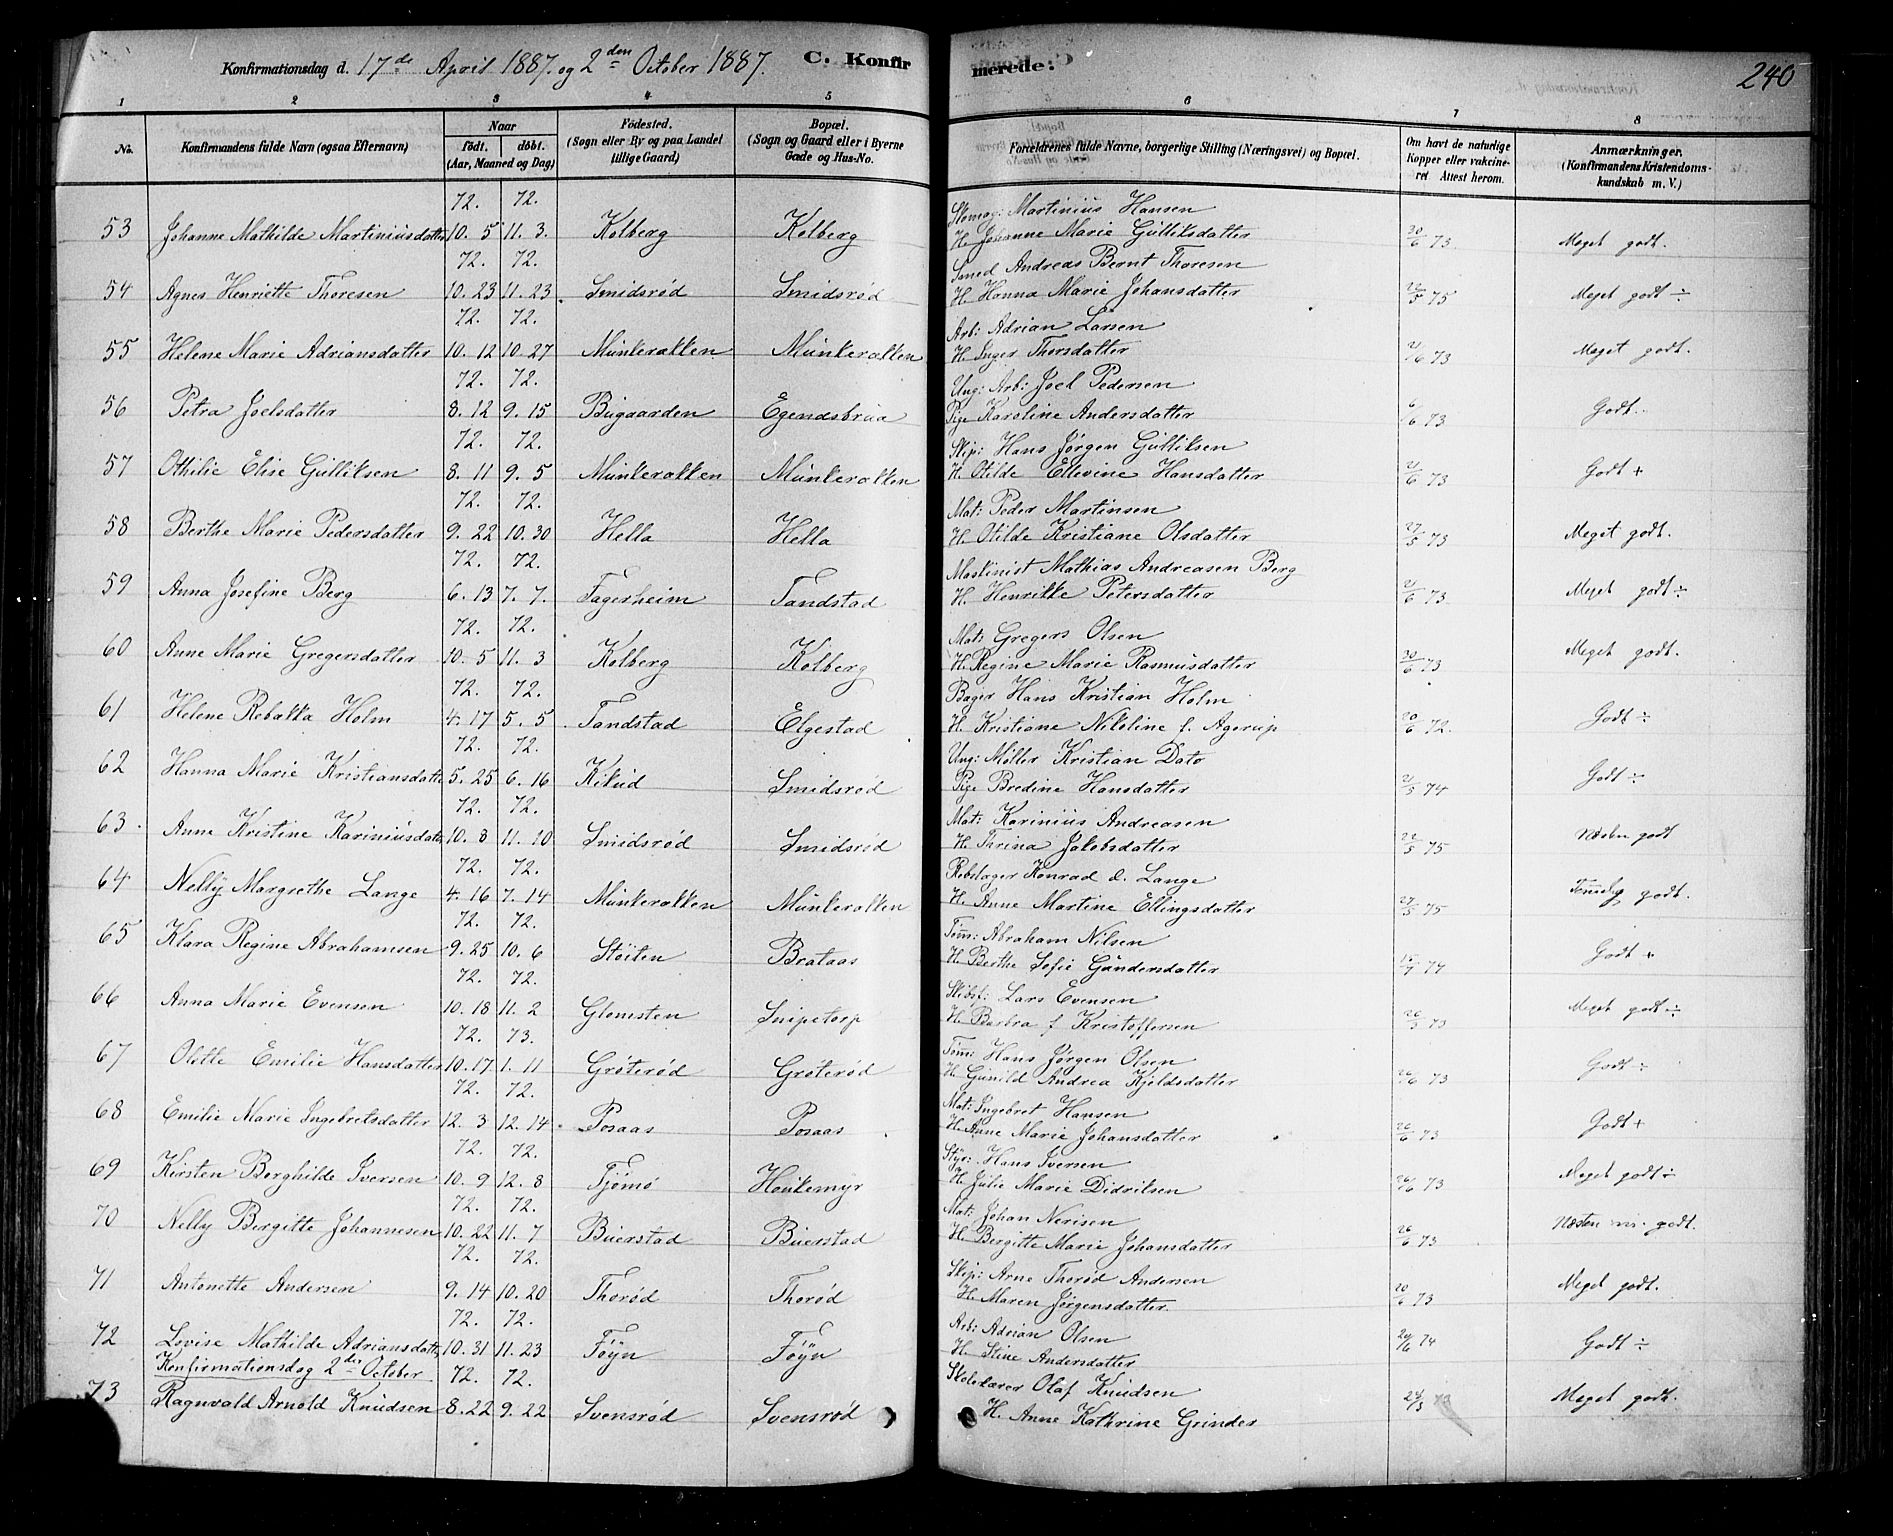 Konfirmationsdag d. 17de April 1887. og 2den October 1887. C. Konfirmerede: 240
1 2 3 4 5 6 7 8
No. Konfirmandens fulde Navn (ogsaa Efternavn) Naar født. døbt. (Aar, Maaned og Dag) Fødested. (Sogn eller By og paa Landet tillige Gaard) Bopæl. (Sogn og Gaard eller i Byerne Gade og Hus-No. Forældrenes fulde Navne, borgerlige Stilling (Næringsvei) og Bopæl. Om havt de naturlige Kopper eller vakcineret Attest herom. Anmærkninger. (Konfirmandens Kristendomskundskab m. V.)
72. 72. Skomag: Martinius Hansen
53 Johanne Mathilde Martiniusdatter 10. 5 11. 3. Kolberg Kolberg H. Johanne Marie Gulliksdatter 30/6 73. Meget godt.
72. 72. Smed Andreas Bernt Thoresen
54 Agnes Henriette Thoresen 10. 23 11. 23. Smidsrød Smidsrød H. Hanna Marie Johansdatter 22/5 75 Meget godt ÷
72. 72. Arb: Adrian Larsen
55 Helene Marie Adriansdatter 10. 12 10. 27 Munkerækken Munkerækken H. Inger Thorsdatter 21/6 73 Meget godt.
72. 72. Ung: Arb: Joel Pedersen
56 Petra Joelsdatter 8. 12 9. 15 Bugaarden Egendsbrua Pige Karoline Andersdatter 6/6 73 Godt.
72. 72. Skip: Hans Jørgen Gulliksen
57 Othilie Elise Gulliksen 8. 11 9. 5 Munkerækken Munkerækken H. Otilde Ellevine Hansdatter 21/6 73 Godt +
72. 72. Mat: Peder Martinsen
58 Berthe Marie Pedersdatter 9. 22 10. 30 Hella Hella H. Otilde Kristiane Olsdatter 27/5 73 Meget godt.
72. 72. Maskinist Mathias Andreasen Berg
59 Anna Josefine Berg 6. 13 7. 7. Fagerheim Tandstad H. Henrikke Petersdatter 21/6 73. Meget godt ÷
72. 72. Mat: Gregers Olsen
60 Anne Marie Gregersdatter 10. 5 11. 3 Kolberg Kolberg H. Regine Marie Rasmusdatter 30/6 73 Meget godt.
72. 72. Bager Hans Kristian Holm
61 Helene Rebakka Holm 4. 17 5. 5 Tandstad Elgestad H. Kristiane Nikoline f. Agerup 20/6 72. Godt ÷
72. 72. Ung: Møller Kristian Dato
62 Hanna Marie Kristiansdatt 5. 25 6. 16 Kikud Smidsrød Pige Bredine Hansdatter 21/5 74 Godt ÷
72. 72. Mat: Karinius Andreasen
63. Anne Kristine Kariniusdatt 10. 8 11. 10 Smidsrød Smidsrød H. Thrina Jakobsdatter 22/5 75 Næsten godt
72. 72. Rebslager Konrad d. Lange
64 Nelly Margrethe Lange 4. 16 7. 14 Munkerækken Munkerækken H. Anne Martine Ellingsdatter 27/5 75 godt.
72. 72. Tøm: Abraham Nilsen
65 Klara Regine Abrahamsen 9. 25 10. 6 Støiten Brataas H. Berthe Sofie Gundersdatter 15/7 74 Godt +
72. 72. Skibsf: Lars Evensen
66 Anna Marie Evensen 10. 18 11. 2 Glomsten Snipetorp H. Barbra f. Kristoffersen 26/5 73 Meget godt ÷
72. 73. Tøm: Hans Jørgen Olsen
67 Olette Emilie Hansdatter 10. 17 1. 11 Grøterød Grøterød H. Gunild Andrea Kjeldsdatter 26/6 73 Godt ÷
72. 72. Mat: Ingebret Hansen
68 Emilie Marie Ingebretsdatter 12. 3 12. 14 Posaas Posaas H. Anne Marie Johansdatter 26/6 73 Godt +
72. 72. Styr: Hans Iversen
69 Kirsten Borghilde Iversen 10. 9 12. 8 Tjømø Houkemyr H. Julie Marie Didriksen 26/6 73 Meget godt ÷
72. 72. Mat: Johan Nerisen
70 Nelly Bergitte Johannesen 10. 22 11. 7 Buerstad Buerstad H. Bergitte Marie Johansdatter 26/6 73 Næsten m. godt.
72. 72. Skip: Arne Thorød Andersen
71 Antonette Andersen 9. 14 10. 20 Thorød Thorød H. Maren Jørgensdatter 20/6 73 Meget godt.
72. 72. Arb: Adrian Olsen
72 Lovise Mathilde Adriansdatt 10. 31 11. 23 Føyn Føyn H. Stine Andersdatter 24/6 74 Godt ÷
Konfirmationsdag 2den October 72. 72. Skolelærer Olaf Knudsen
73 Ragnvald Arnold Knudsen 8. 22 9. 22 Svensrød Svensrød H. Anne Kathrine Grinder 24/3 73 Meget godt.